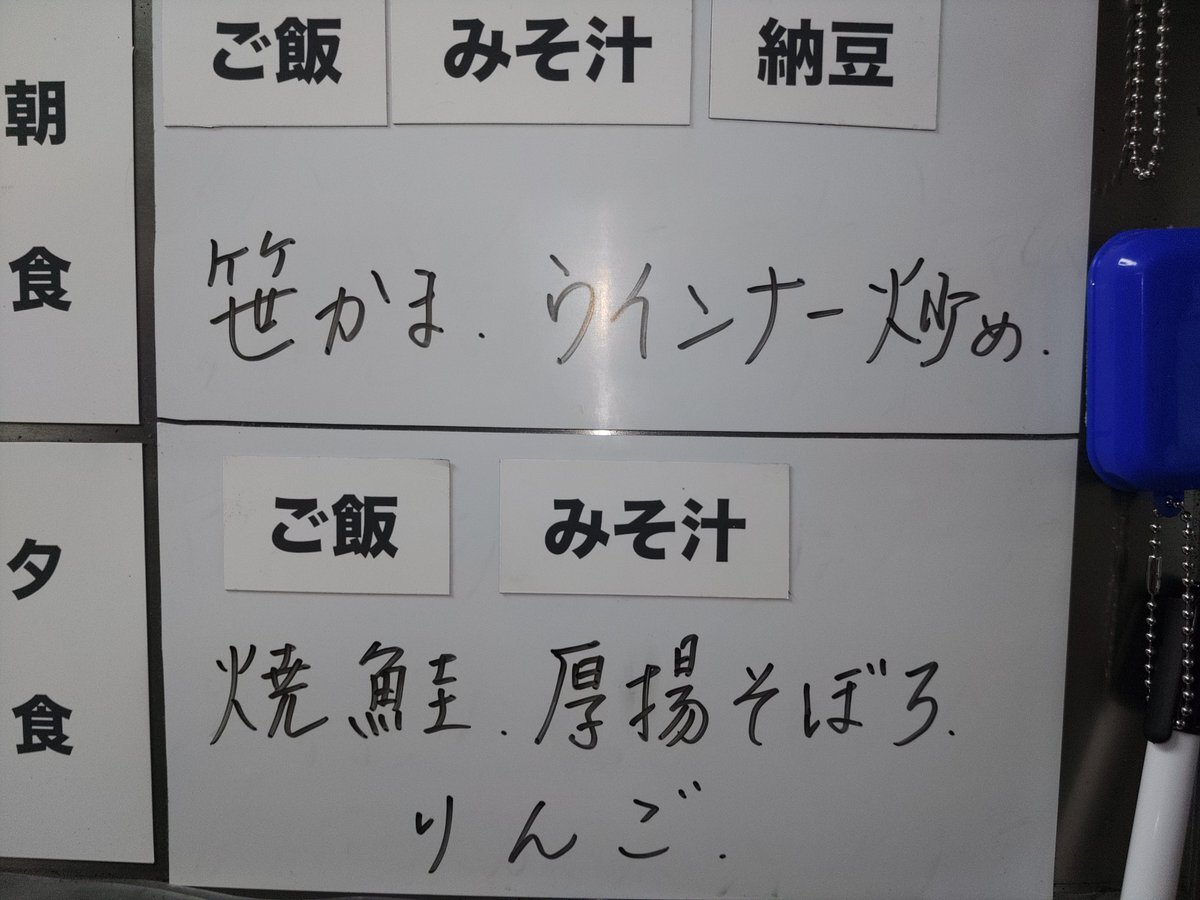 朝食
ご飯 みそ汁 納豆
笹かま. ウインナー炒め.
夕食
ご飯 みそ汁
焼鮭. 厚揚そぼろ.
りんご.